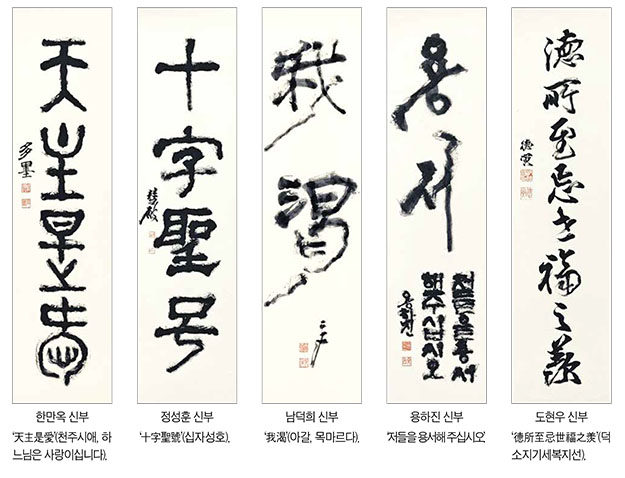 天主是愛
多墨
十字聖号
我渴
용서
저들을용서
해주십시오
용하진
德所至忌世福之羨
한만옥 신부
'天主是愛'(천주시애, 하
느님은 사랑이십니다).
정성훈 신부
'十字聖號'(십자성호).
남덕희 신부
'我渴'(아갈, 목마르다).
용하진 신부
'저들을 용서해 주십시오'
도현우 신부
'德所至忌世福之羨'(덕
소지기세복지선).